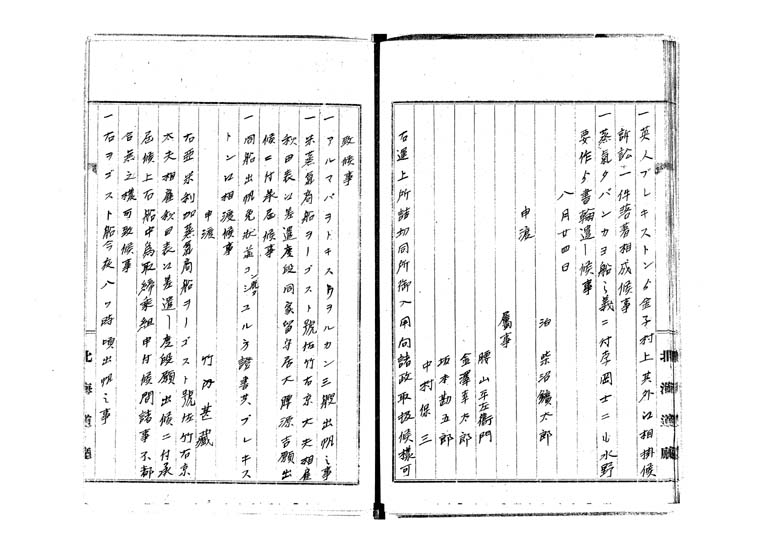 一英人ブレキストンゟ金子村上其外江相掛候
訴訟一件落着相成候事
一蒸気タバンカヨ船之義ニ付孛岡士ニ山水野
要作ゟ書翰遣し候事
八月廿四日
泊 柴沼鑛太郎
申渡
属事
腰山平左衛門
金澤幸太郎
坂本勘五郎
中村保三
右運上所詰切同所御入用向諸政取扱候様可
致候事
一アルマバヲトキスタウヲルカン三艘出帆之事
一米蒸気商船ヲーゴスト號佐竹右京大夫相雇
秋田表江差遣度段同家留守居大縄源吉願出
候ニ付承届候事
一同船出帆免状並コンシユル方證書共ブレキス
トン江相渡候事
申渡
竹内甚藏
右亜米利加蒸気商船ヲーゴスト號佐竹右京
太夫相雇秋田表江差遣し度段願出候ニ付承
届候上右船中為取締乗組申付候間諸事不都
合無之様可致候事
一右ヲゴスト船今夜八ツ時頃出帆之事
北海道廳
北海道廳